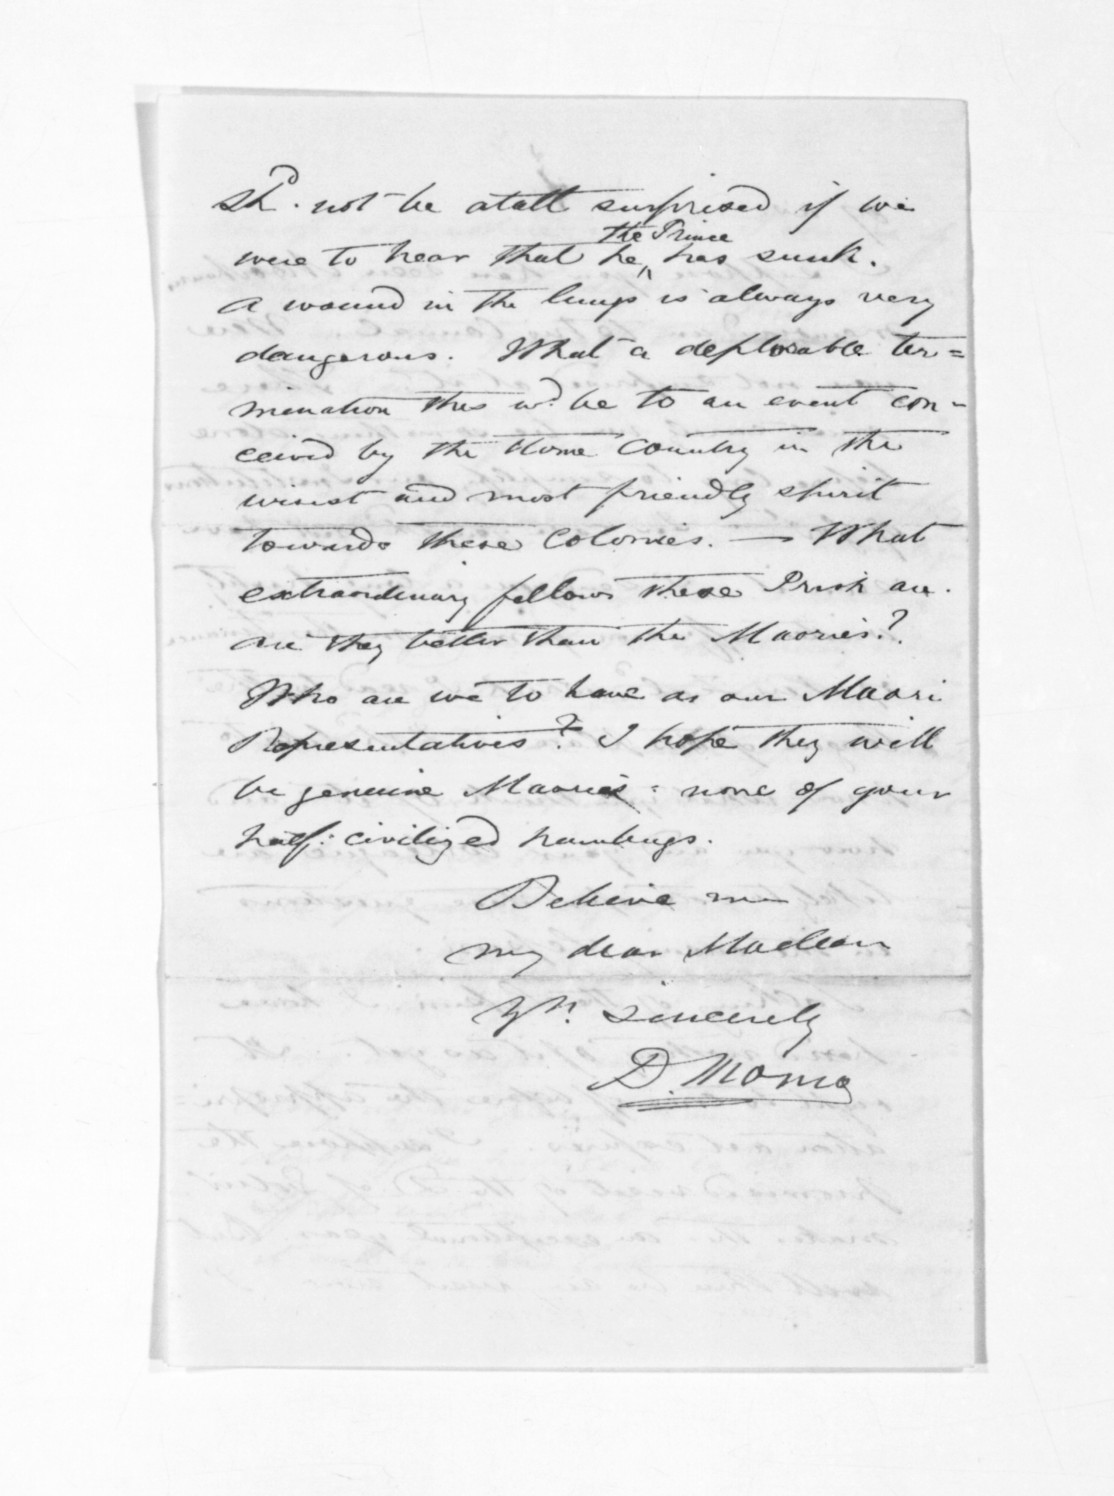 Shd. not be atall surprised if we
were to hear that he ^the Prince has sunk.
A wound in the lungs is always very
dangerous. What a deplorable ter=
mination this wd. be to an event con-
ceived by the Home Country in the
wisest and most friendly spirit
towards these Colonies. — What
extraordinary fellows these Irish are.
Are they better than the Maories?
Who are we to have as our Maori
Representatives? I hope they will
be genuine Maories: none of your
half: civilized humbugs.
Believe me
my dear Maclean
Yrs. Sincerely
D. Monro